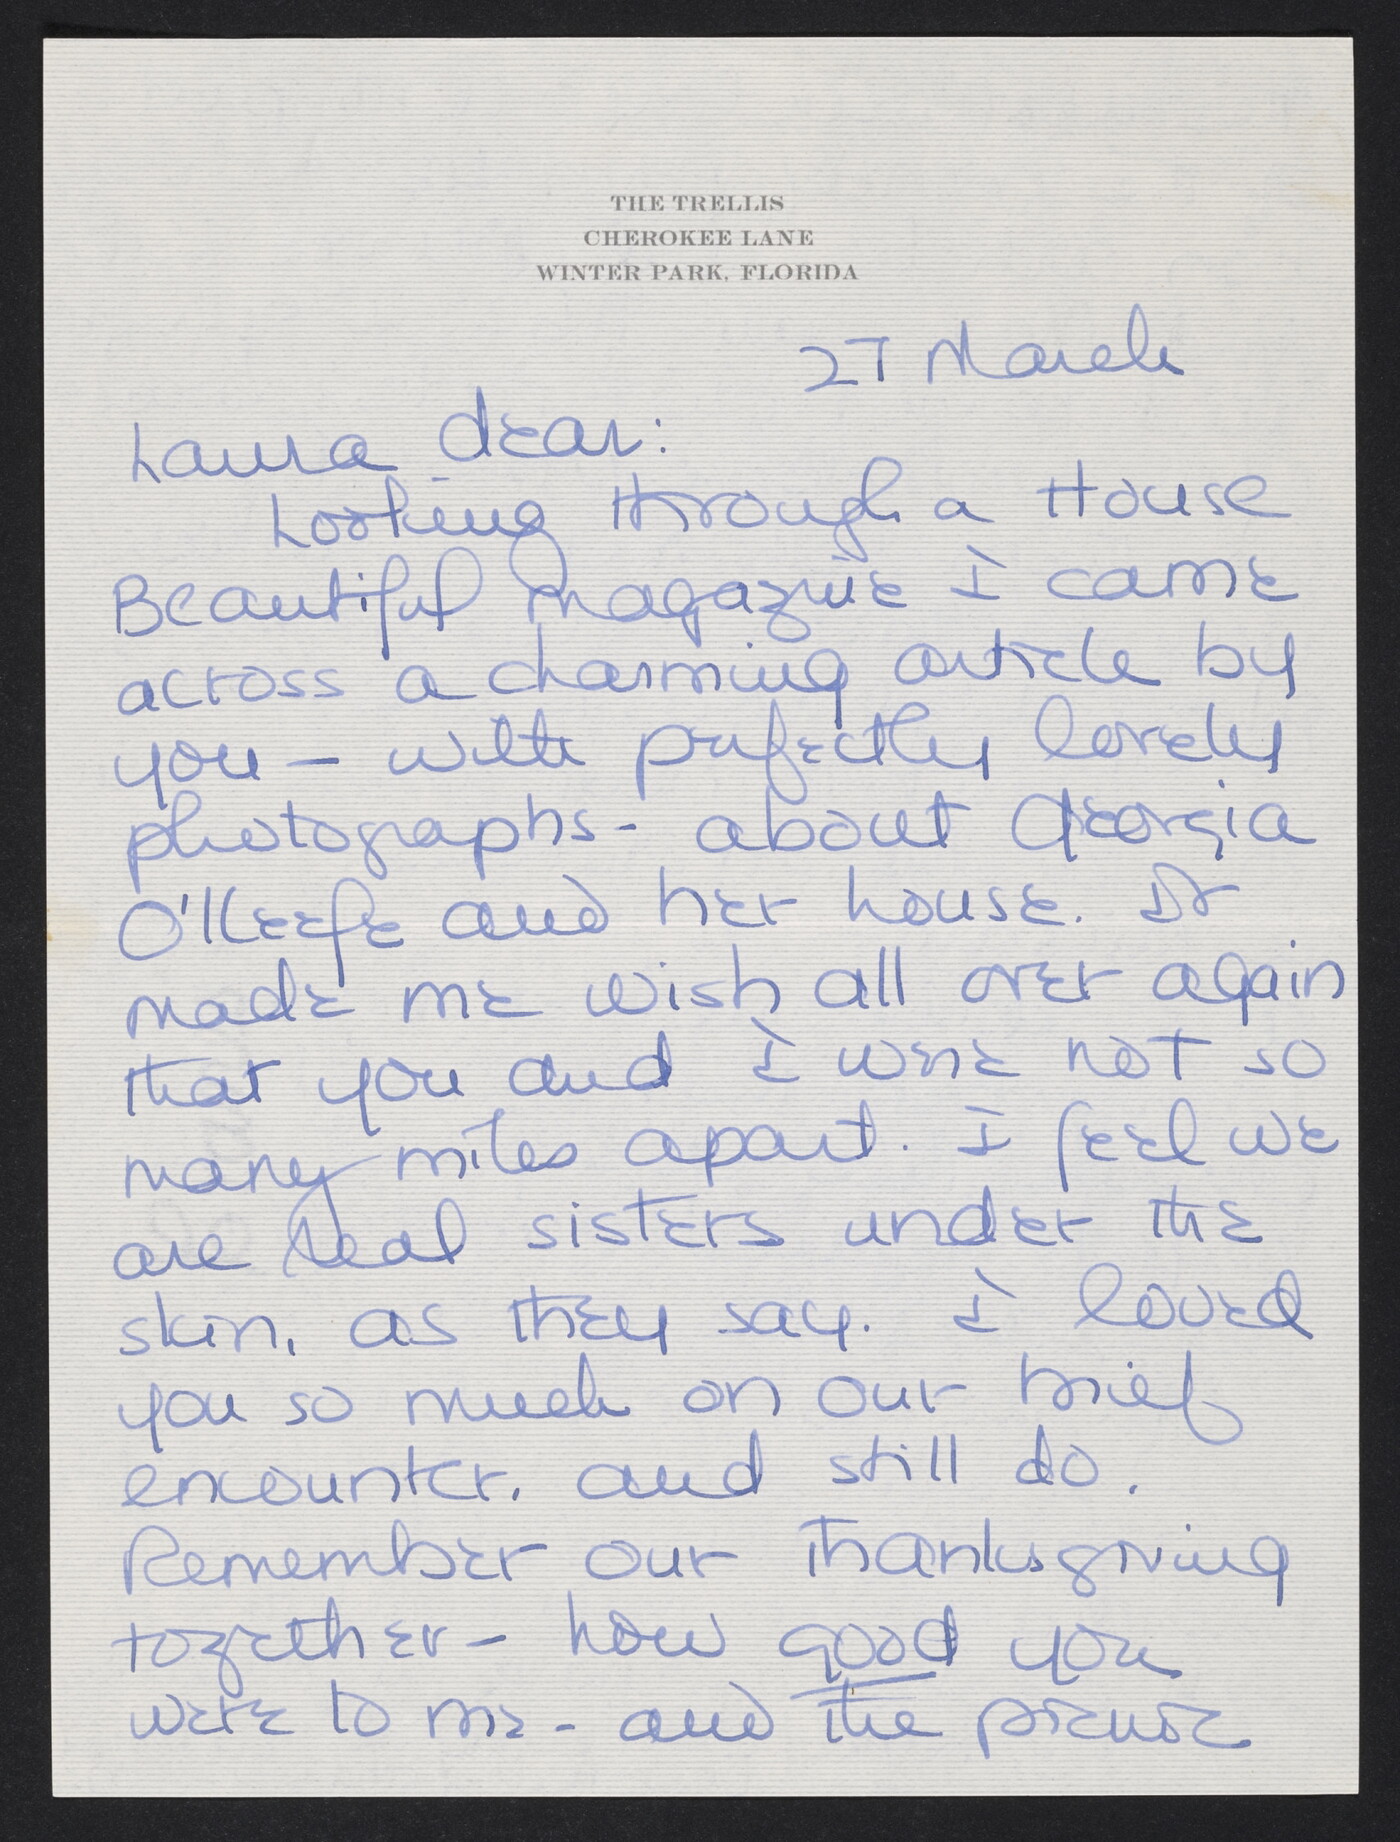 THE TRELLIS
CHEROKEE LANE
WINTER PARK, FLORIDA
27 March
Laura dear:
Looking through a House
Beautiful magazine I came
across a charming article by
you — with perfectly lovely
photographs - about Georgia
O'Keefe and her house. It
made me wish all over again
that you and I were not so
many miles apart. I feel we
are real sisters under the
skin, as they say. I loved
you so much on our brief
encounter, and still do.
Remember our Thanksgiving
together - how good you
were to me - and the picnic